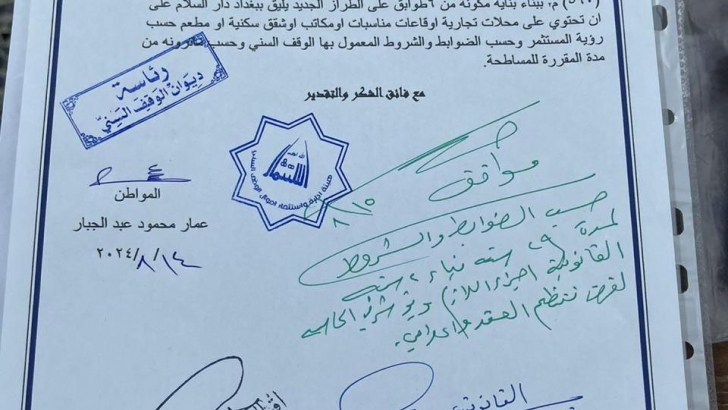 م، ببناء بناية مكونة من ٦طوابق على الطراز الجديد يليق ببغداد دار السلام على
ان تحتوي على محلات تجارية اوقاعات مناسبات اومكاتب اوشقق سكنية او مطعم حسب
رؤية المستثمر وحسب الضوابط والشروط المعمول بها الوقف السني وحسب من
مدة المقررة للمساطحة.
مع فائق الشكر والتقدير
رئاسة
ديوان الوقف السني
هيئة ادارة واستثمار اموال الوقف السني
المواطن
عمار محمود عبد الجبار
٢٠٢٤/٨/١٤
موافق
٨/١٥
حسب الضوابط والشروط
لمدة ٢٩ سنة بناء ٢ سنه
القانونية اجراء اللازم
لغرض تنظيم العقد واعلامي.
القانونية